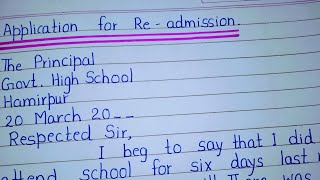 Application for Re-admission.
The Principal
Govt. High School
Hamirpur
20 March 20--
Respected Sir,
I beg to say that I did
attend school for six days last
was